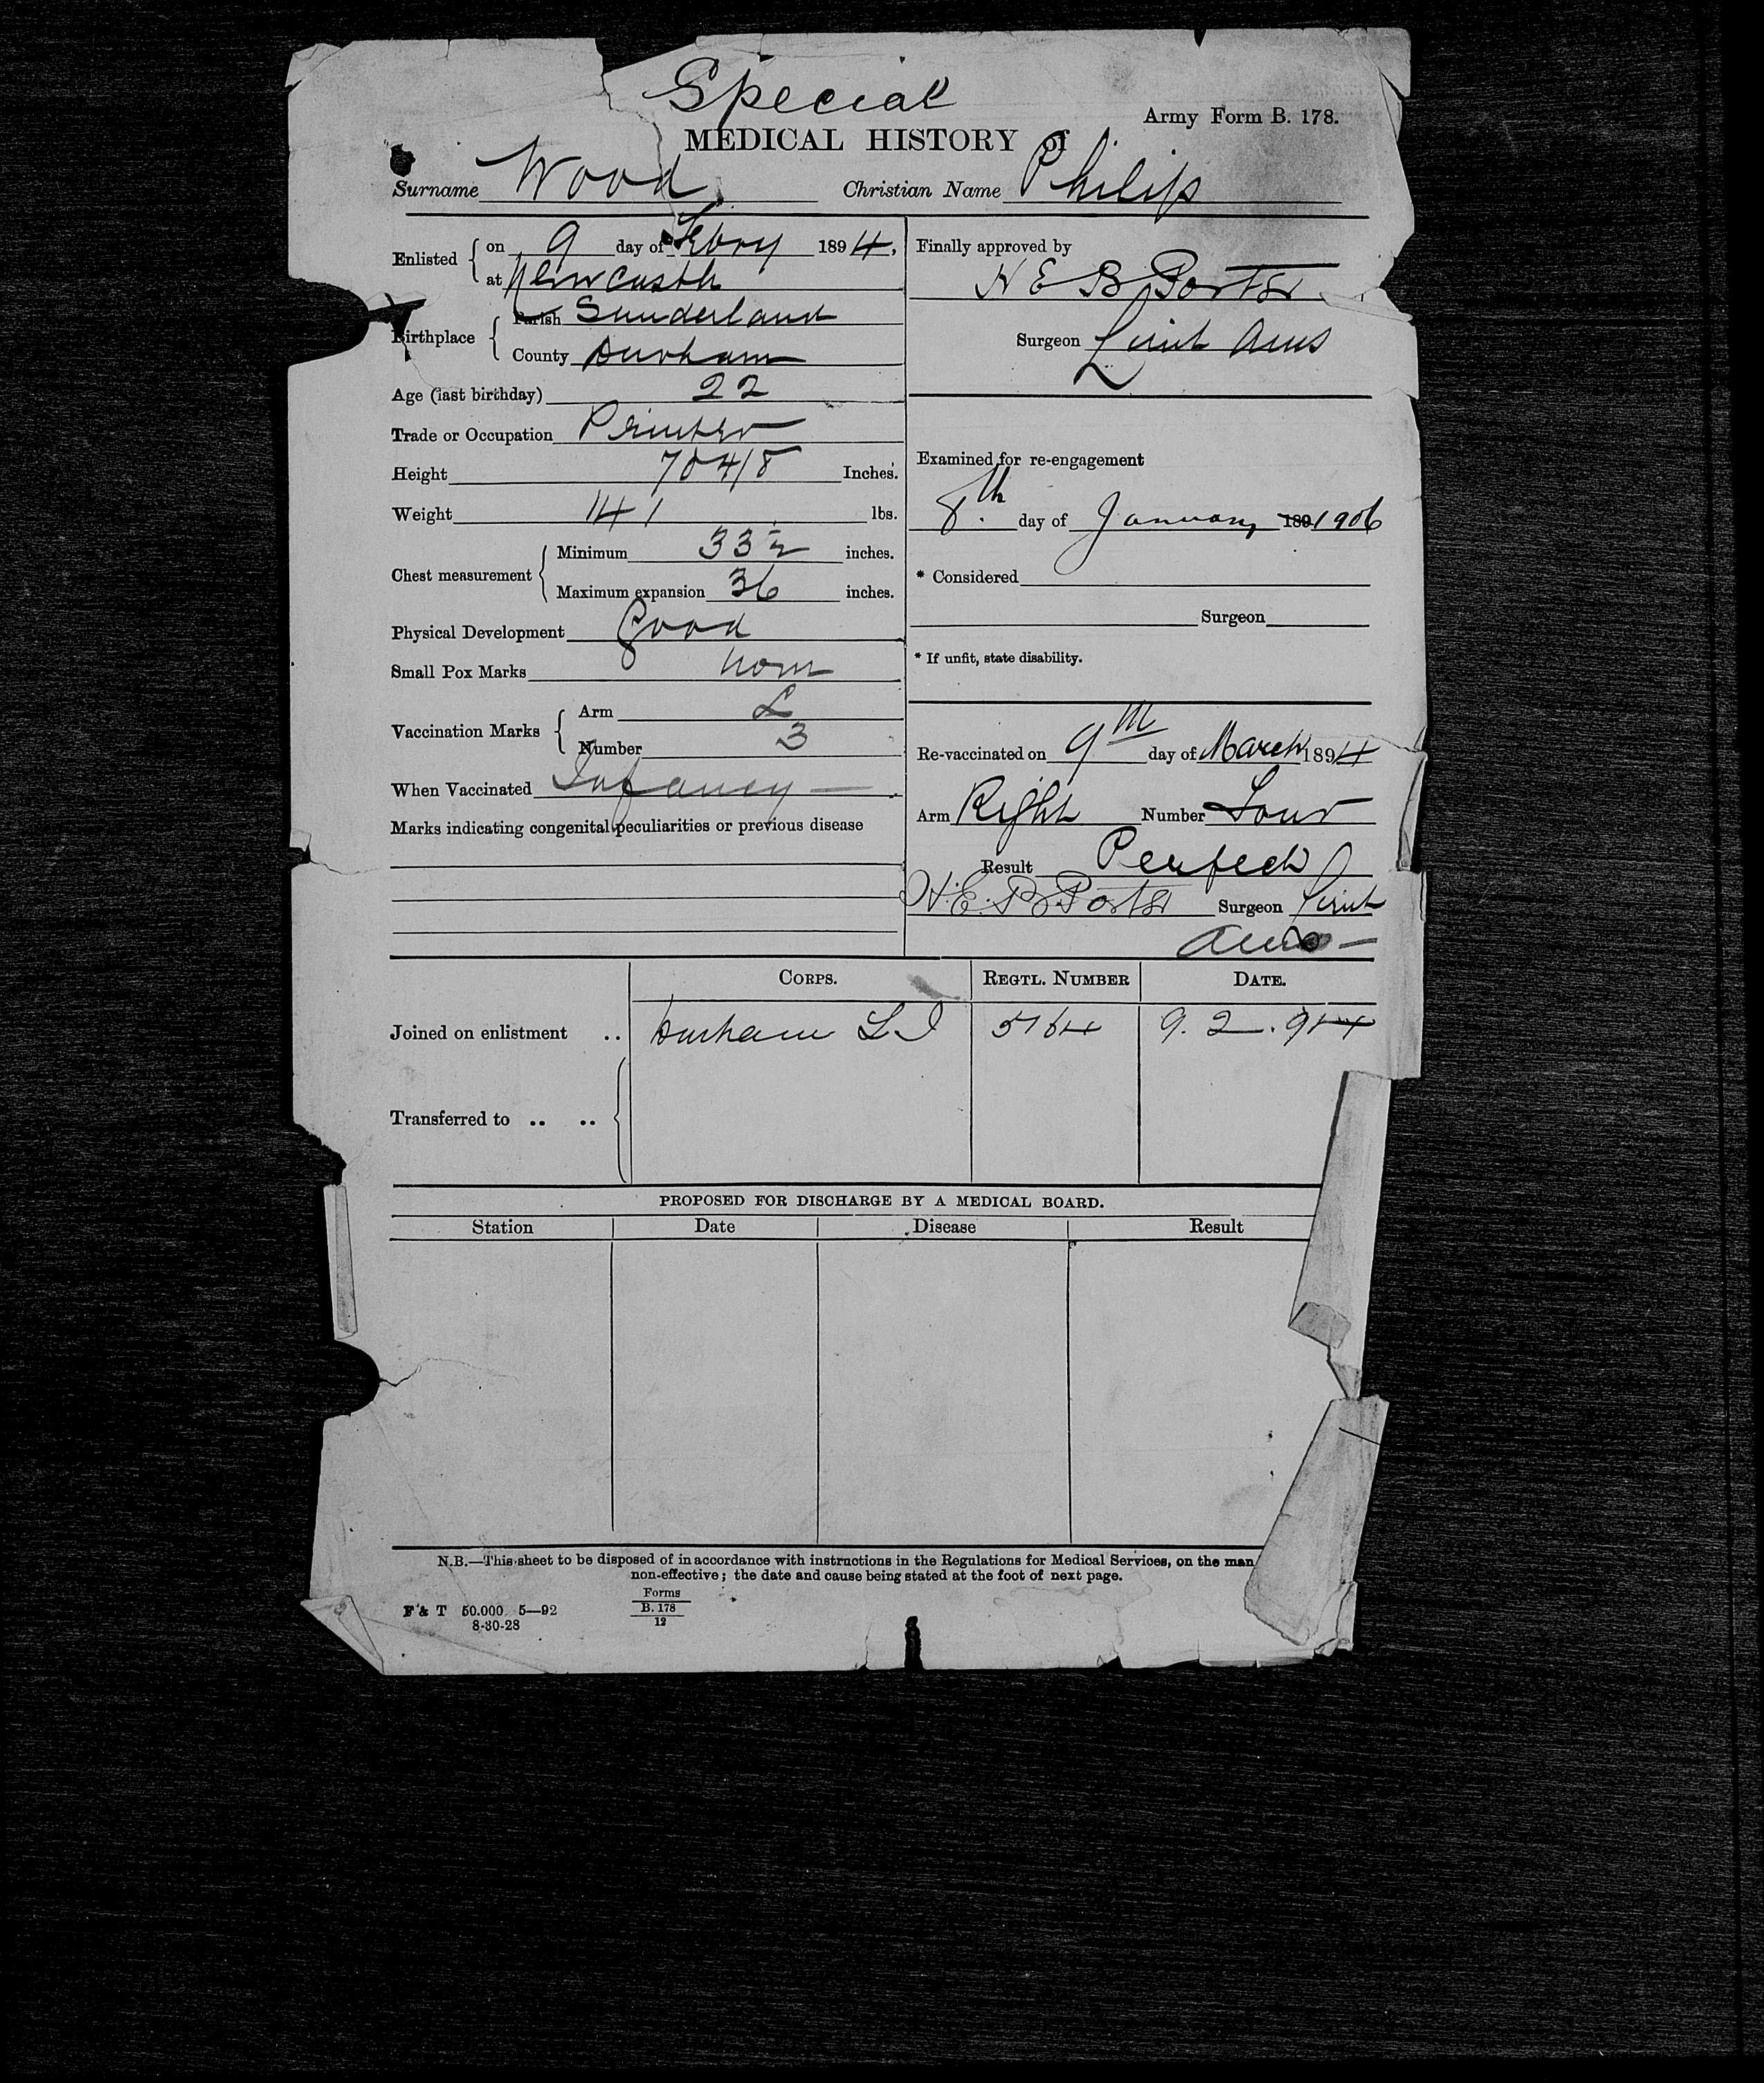 Special
Army Form B. 178.
MEDICAL HISTORY of
Surname Wood Christian Name Philip
Enlisted { on 9 day of Febry 1894,
at Newcastle
Birthplace { Parish Sunderland
County Durham
Age (last birthday) 22
Trade or Occupation Printer
Height 70 4/8 Inches.
Weight 141 lbs.
Chest measurement { Minimum 33 1/2 inches.
Maximum expansion 36 inches.
Physical Development Good
Small Pox Marks None
Vaccination Marks { Arm L
Number 3
When Vaccinated Infancy —
Marks indicating congenital peculiarities or previous disease
Finally approved by
H E B Porter
Surgeon Lieut AMS
Examined for re-engagement
8th day of January 1891906
* Considered
Surgeon
* If unfit, state disability.
Re-vaccinated on 9th day of March 1894
Arm Right Number Four
Result Perfect
H. E. B Porter Surgeon Lieut
AMS —
CORPS. REGTL. NUMBER DATE.
Joined on enlistment .. Durham L I 5164 9. 2. 94
Transferred to .. .. {
PROPOSED FOR DISCHARGE BY A MEDICAL BOARD.
Station Date Disease Result
N.B.—This sheet to be disposed of in accordance with instructions in the Regulations for Medical Services, on the man
non-effective; the date and cause being stated at the foot of next page.
F & T 50.000 5—92
8-30-28
Forms
B. 178
12